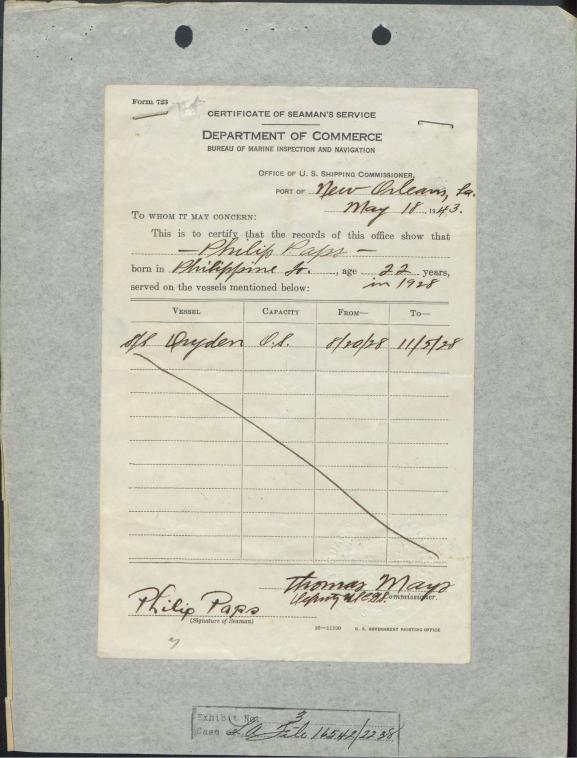 Form 723
CERTIFICATE OF SEAMAN'S SERVICE
DEPARTMENT OF COMMERCE
BUREAU OF MARINE INSPECTION AND NAVIGATION
OFFICE OF U. S. SHIPPING COMMISSIONER,
PORT OF New Orleans, La.
May 18, 1943.
TO WHOM IT MAY CONCERN:
This is to certify that the records of this office show that
— Philip Paps —
born in Philippine Is., age 22 years,
in 1928
served on the vessels mentioned below:
VESSEL CAPACITY FROM— TO—
S/S Dryden O.S. 8/20/28 11/5/28
Thomas Mays
Deputy U.S. Commissioner.
Philip Paps
(Signature of Seaman)
16—11100 U. S. GOVERNMENT PRINTING OFFICE
Exhibit No. 3
Case of File 16542/2238